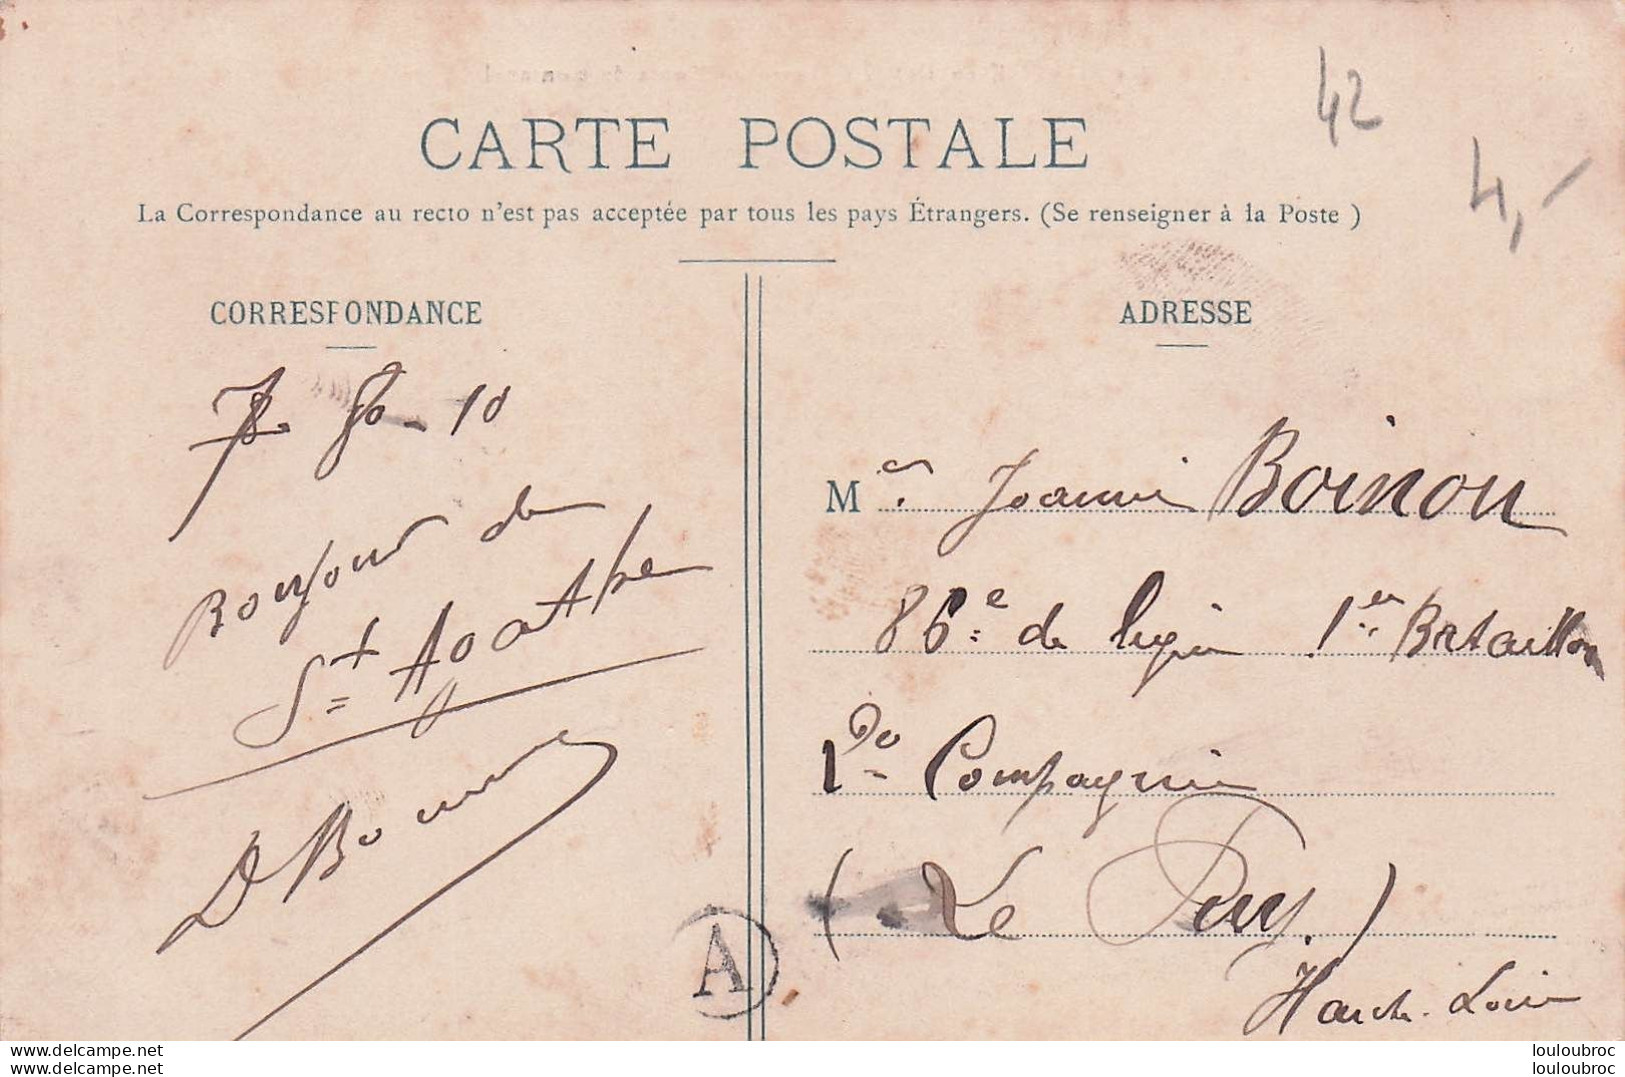 42
4,-
CARTE POSTALE
La Correspondance au recto n'est pas acceptée par tous les pays Étrangers. (Se renseigner à la Poste )
CORRESPONDANCE
10
Bonjour de
St Agathe
D
ADRESSE
Mr. Joanni Boinon
86e de ligne 1er Bataillon
Compagnie
(Le Puy.)
Haute-Loire
A
www.delcampe.net
louloubroc
louloubroc